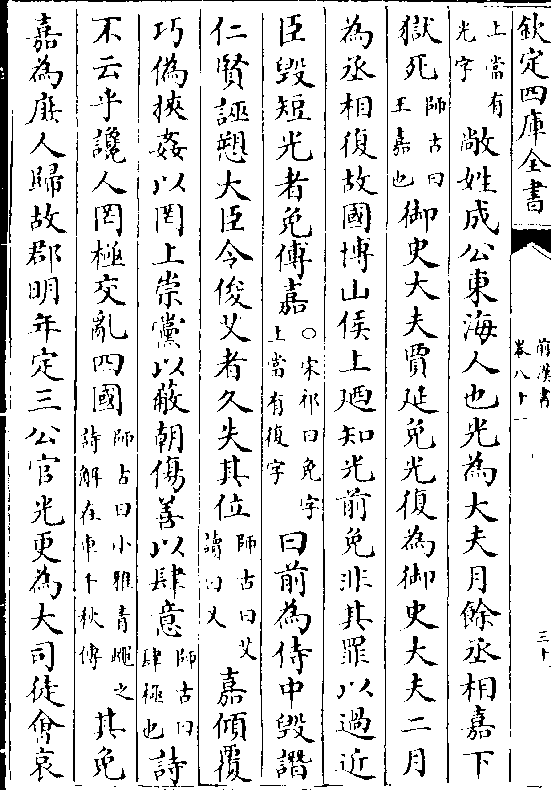 欽定四庫全書
前漢書
卷八十一
三十
上當有
光字
敞姓成公東海人也光為大夫月餘丞相嘉下
獄死
師古曰
王嘉也
御史大夫賈延免光復為御史大夫二月
為丞相復故國博山侯上廼知光前免非其罪以過近
臣毀短光者免傅嘉
○宋祁曰免字
上當有復字
曰前為侍中毀譖
仁賢誣愬大臣令俊艾者久失其位
師古曰艾
讀曰乂
嘉傾覆
巧偽挾姦以罔上崇黨以蔽朝傷善以肆意
師古曰
肆極也
詩
不云乎讒人罔極交亂四國
師古曰小雅青蠅之
詩解在車千秋傳
其免
嘉為庶人歸故郡明年定三公官光更為大司徒會哀